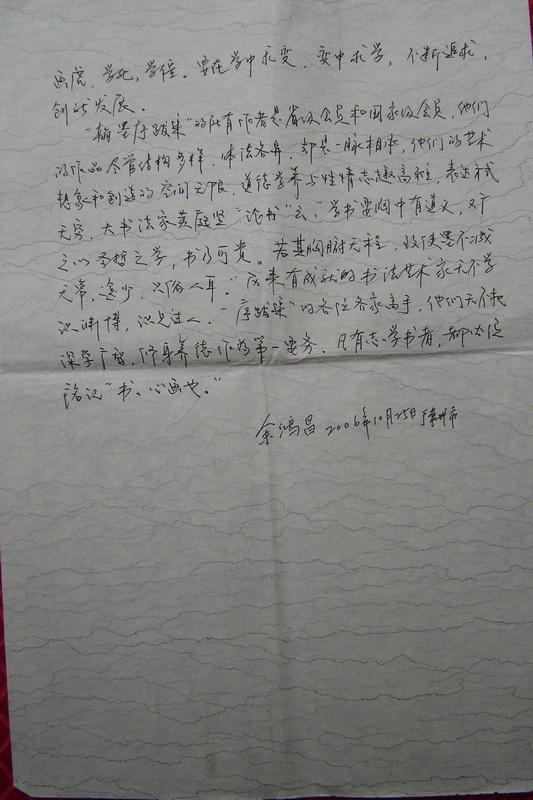 画虎、学死、学僵。要在学中求变，变中求学，不断追求，
创新发展。
“翰墨序跋集”的所有作者是省级会员和国家级会员，他们
的作品尽管结构多样，体法各异，却是一脉相承，他们的艺术
想象和创造的空间无限，道德学养与性情志趣高雅，表达形式
无穷，大书法家黄庭坚“论书”云：“学书要胸中有道义，又广
之以圣哲之学，书乃可贵。若其胸肘无程，致使墨不减
元常，逸少，只俗人耳。”历来有成就的书法艺术家无不学
识渊博，识见过人。“序跋集”的各位名家高手，他们无不把
深学广智，修身养德作为第一要务。凡有志学书者，都必须
铭记“书，心画也。”
余鸿昌 2006年10月25日广州市